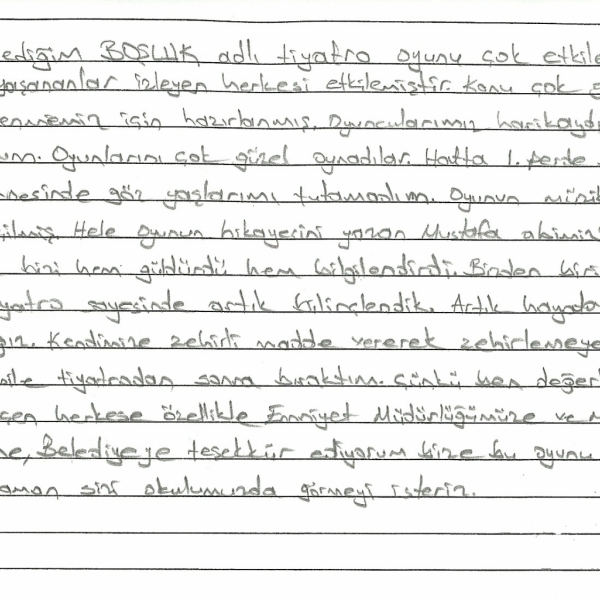 ediğim BOŞLUK adlı tiyatro oyunu çok etkile
yaşananlar izleyen herkesi etkilemiştir. Konu çok g
enmemiz için hazırlanmış. Oyuncularımız harikaydı
um. Oyunlarını çok güzel oynadılar. Hatta 1. perde
nesinde göz yaşlarımı tutamadım. Oyunun müzik
çilmiş. Hele oyunun hikayesini yazan Mustafa abimiz
bizi hem güldürdü hem bilgilendirdi. Birden biri
yatro sayesinde artık bilinçlendik. Artık hayada
ğız. Kendimize zehirli madde vererek zehirlemeye
bile tiyatrodan sonra bıraktım. Çünkü ben değerl
çen herkese özellikle Emniyet Müdürlüğümüze ve M
ne, Belediyeye teşekkür ediyorum bize bu oyunu
aman sizi okulumuzda görmeyi isteriz.